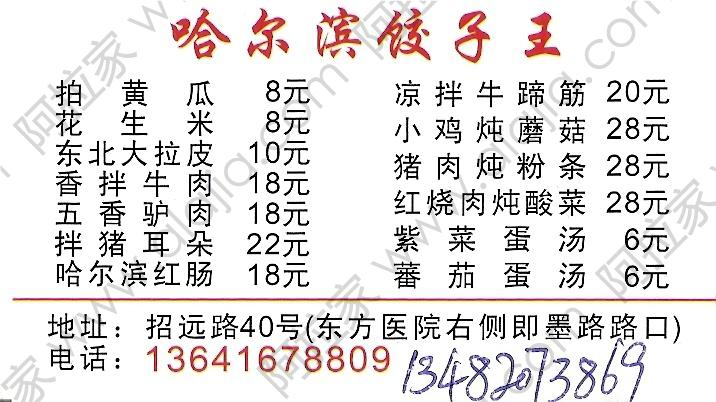 哈尔滨饺子王
拍黄瓜 8元
花生米 8元
东北大拉皮 10元
香拌牛肉 18元
五香驴肉 18元
拌猪耳朵 22元
哈尔滨红肠 18元
凉拌牛蹄筋 20元
小鸡炖蘑菇 28元
猪肉炖粉条 28元
红烧肉炖酸菜 28元
紫菜蛋汤 6元
蕃茄蛋汤 6元
地址：招远路40号(东方医院右侧即墨路路口)
电话：13641678809
13482073869
阿拉家 www.alajia.com